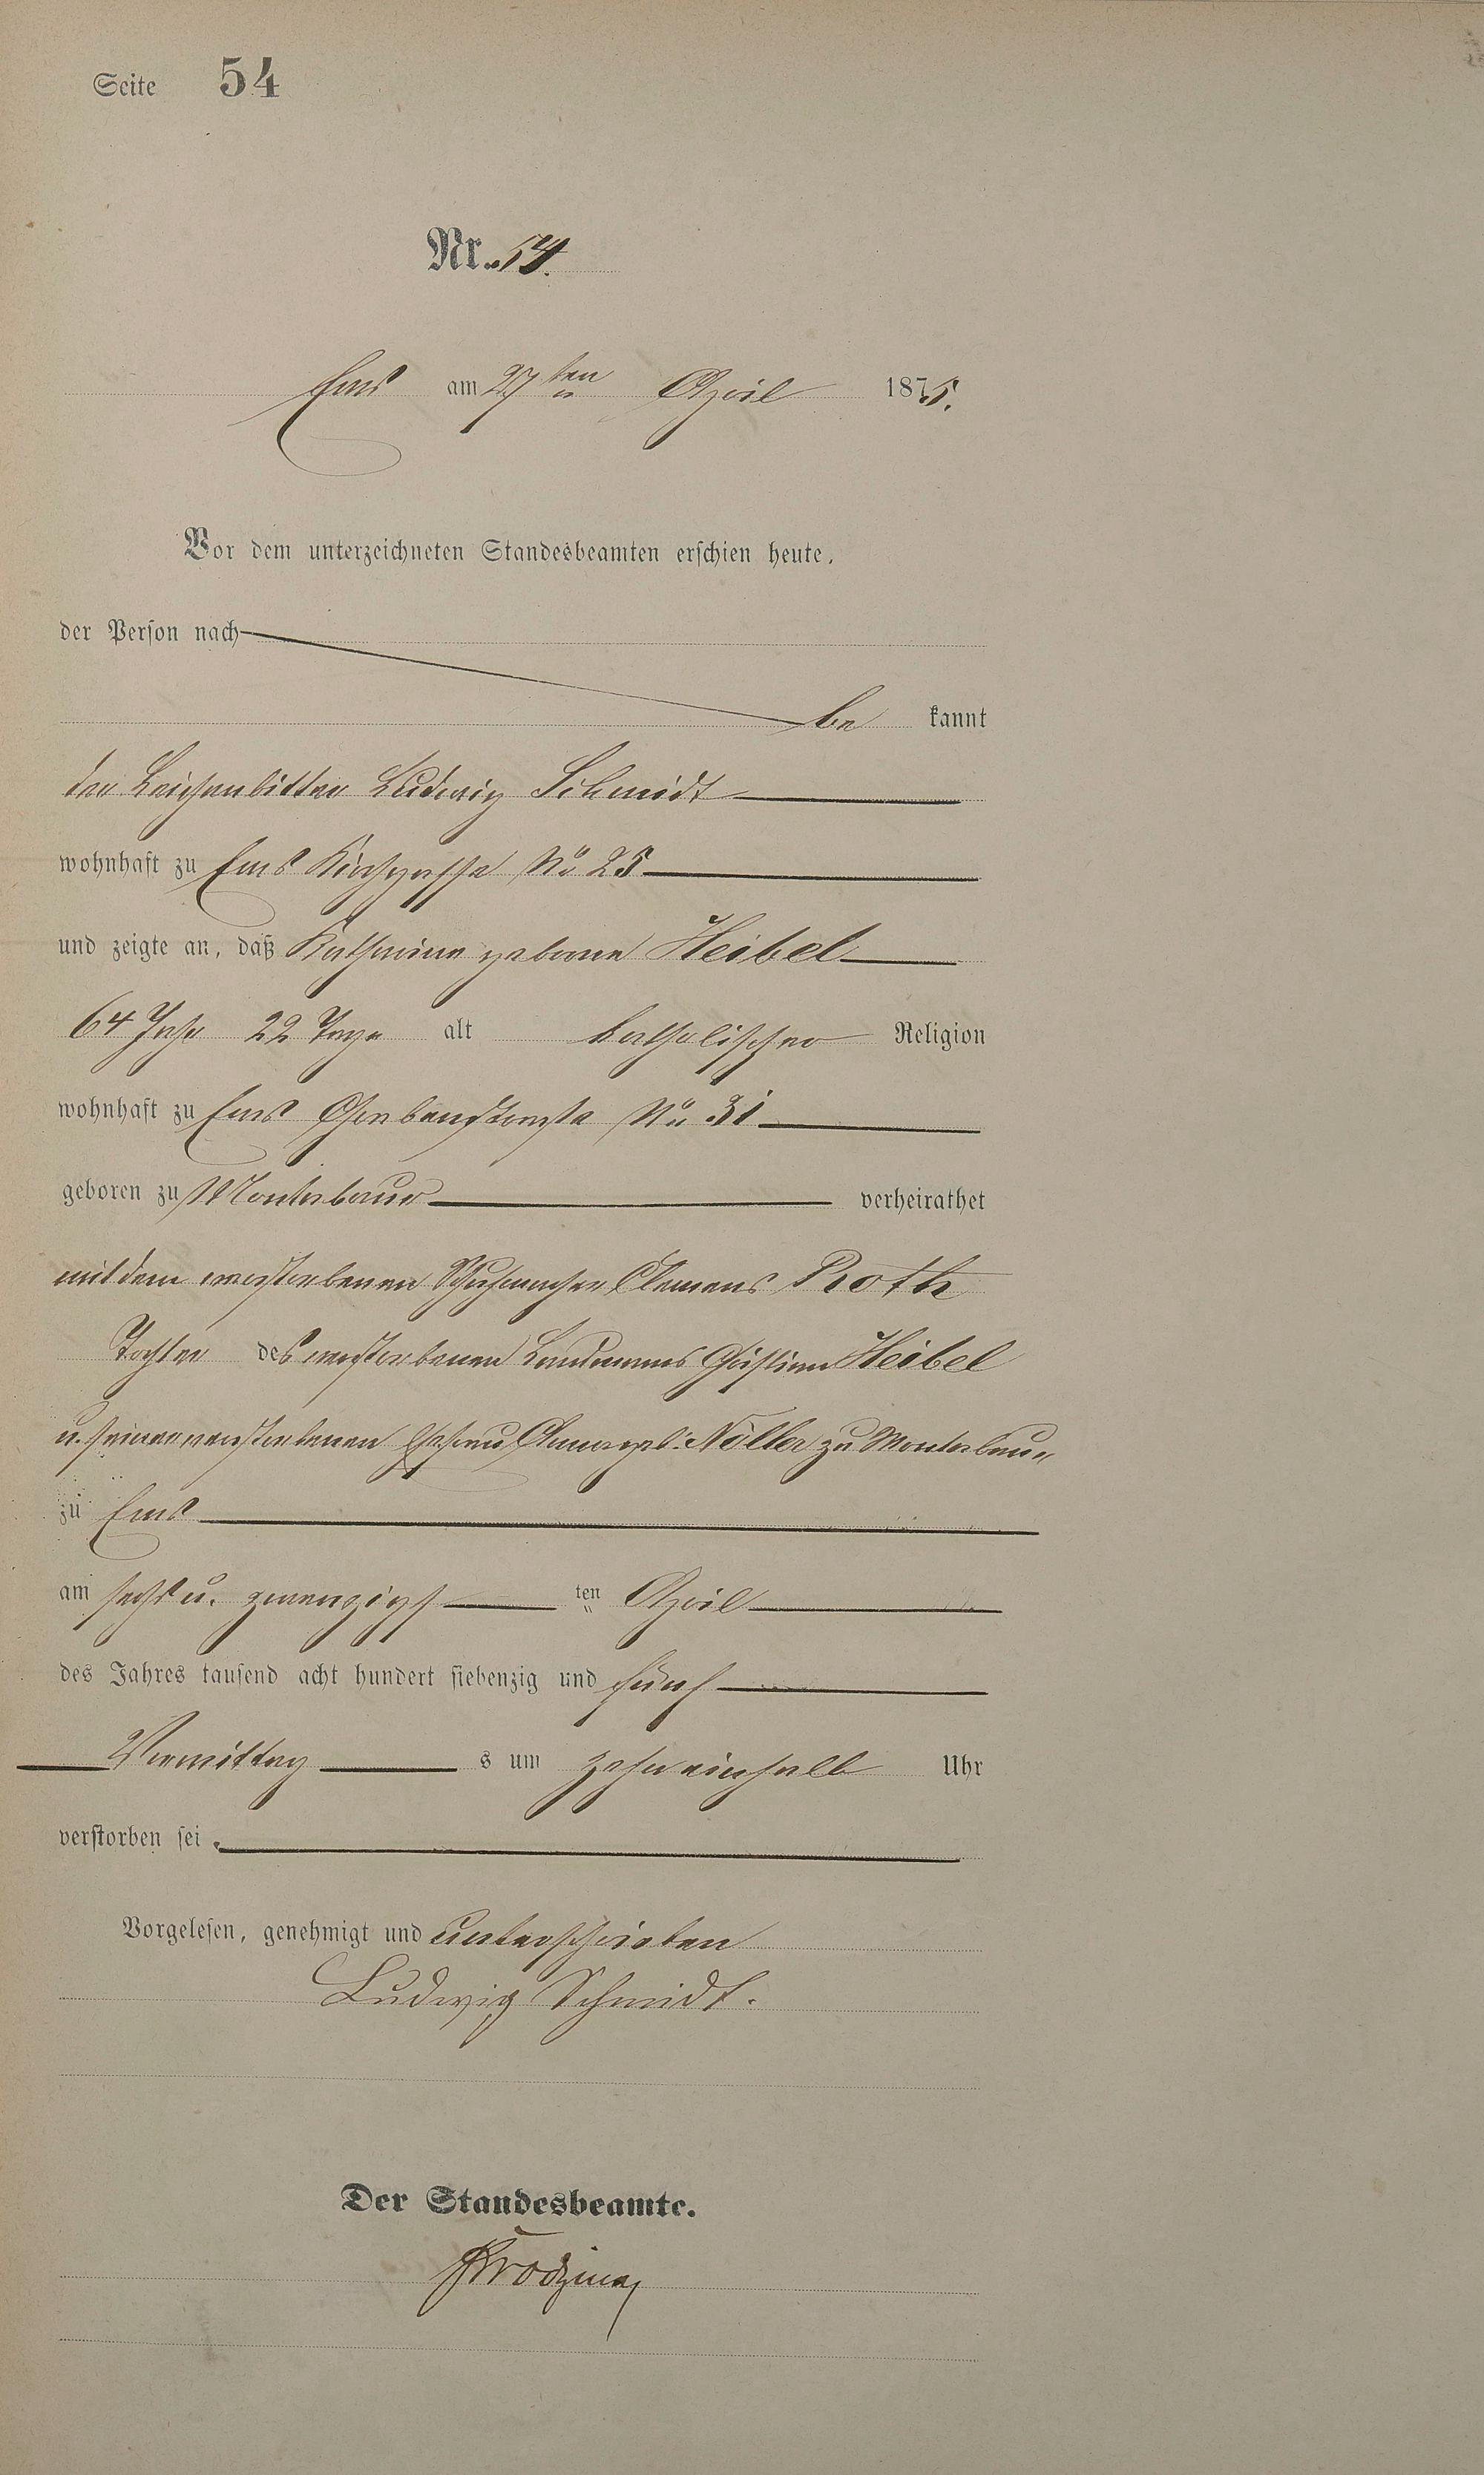 Seite 54
Nr. 54.
Ems am 27ten April 1875.
Vor dem unterzeichneten Standesbeamten erschien heute,
der Person nach
be kannt
der Leichenbitter Ludwig Schmidt
wohnhaft zu Ems Kirchgasse No 25
und zeigte an, daß Katharina geborne Heibel
64 Jahr 22 Tage alt katholischer Religion
wohnhaft zu Ems No 31
geboren zu Montabaur verheirathet
mit dem verstorbenen Schuhmacher Clemens Proth
Tochter des verstorbenen Landmanns Christian Heibel
u. seiner verstorbenen Ehefrau geb. Nöller zu Montabaur
zu Ems
am sechs u. zwanzigsten April
des Jahres tausend acht hundert siebenzig und fünf
Vormittag s um zehn einhalb Uhr
verstorben sei.
Vorgelesen, genehmigt und unterschrieben
Ludwig Schmidt.
Der Standesbeamte.